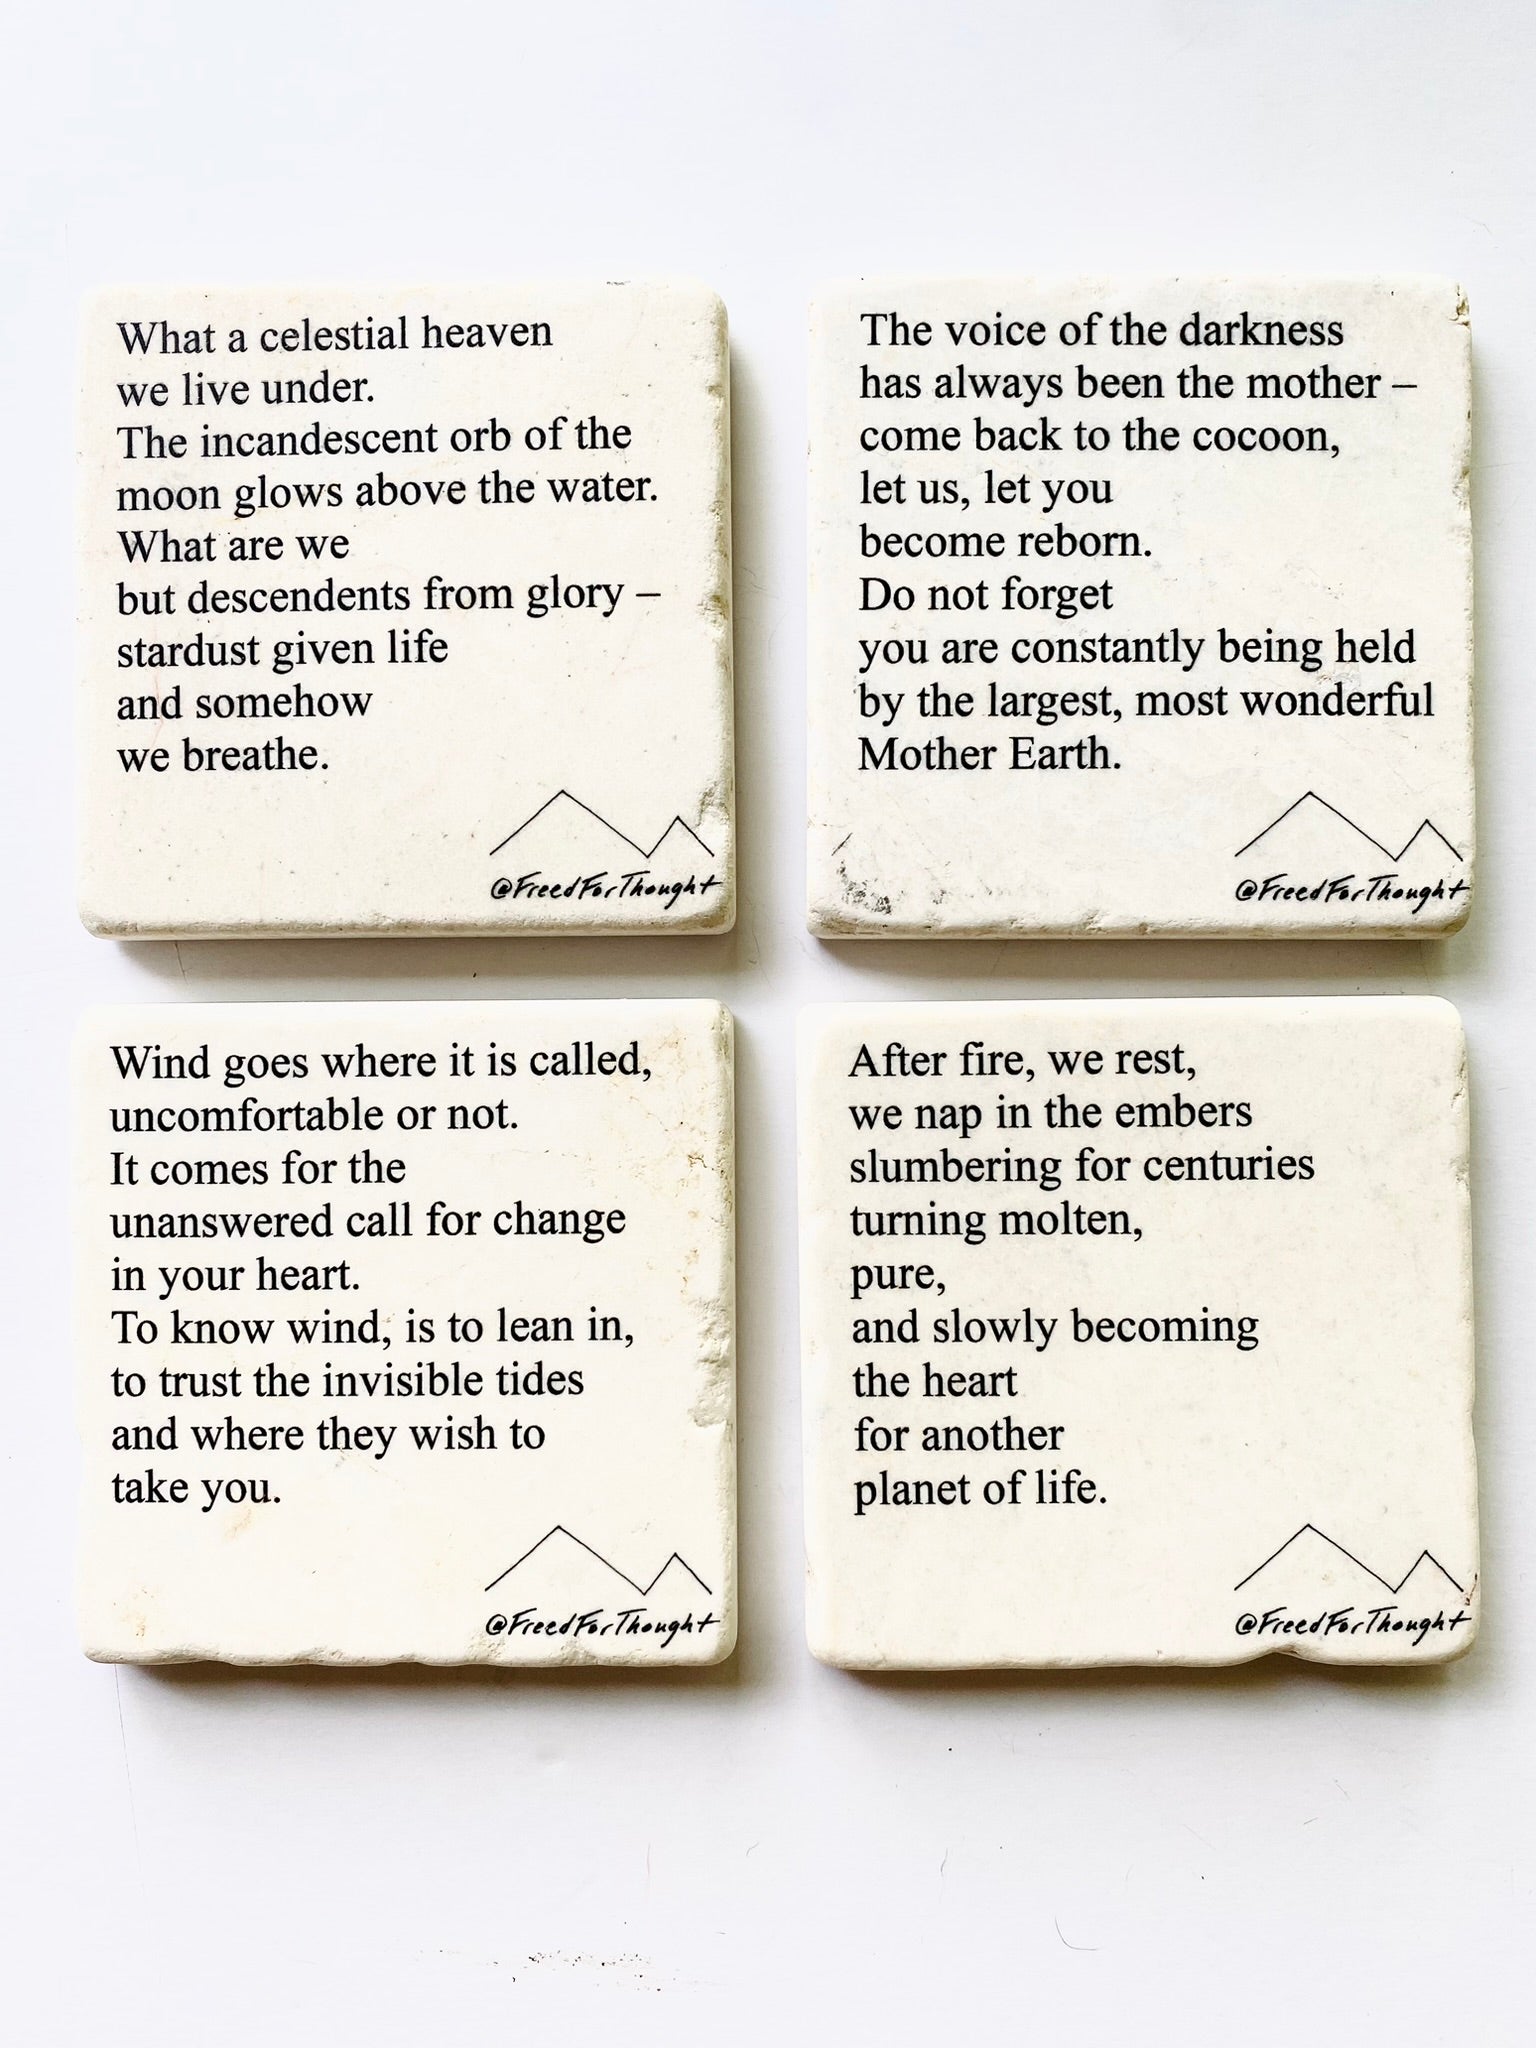 What a celestial heaven
we live under.
The incandescent orb of the
moon glows above the water.
What are we
but descendents from glory –
stardust given life
and somehow
we breathe.
@FreedForThought
The voice of the darkness
has always been the mother –
come back to the cocoon,
let us, let you
become reborn.
Do not forget
you are constantly being held
by the largest, most wonderful
Mother Earth.
@FreedForThought
Wind goes where it is called,
uncomfortable or not.
It comes for the
unanswered call for change
in your heart.
To know wind, is to lean in,
to trust the invisible tides
and where they wish to
take you.
@FreedForThought
After fire, we rest,
we nap in the embers
slumbering for centuries
turning molten,
pure,
and slowly becoming
the heart
for another
planet of life.
@FreedForThought